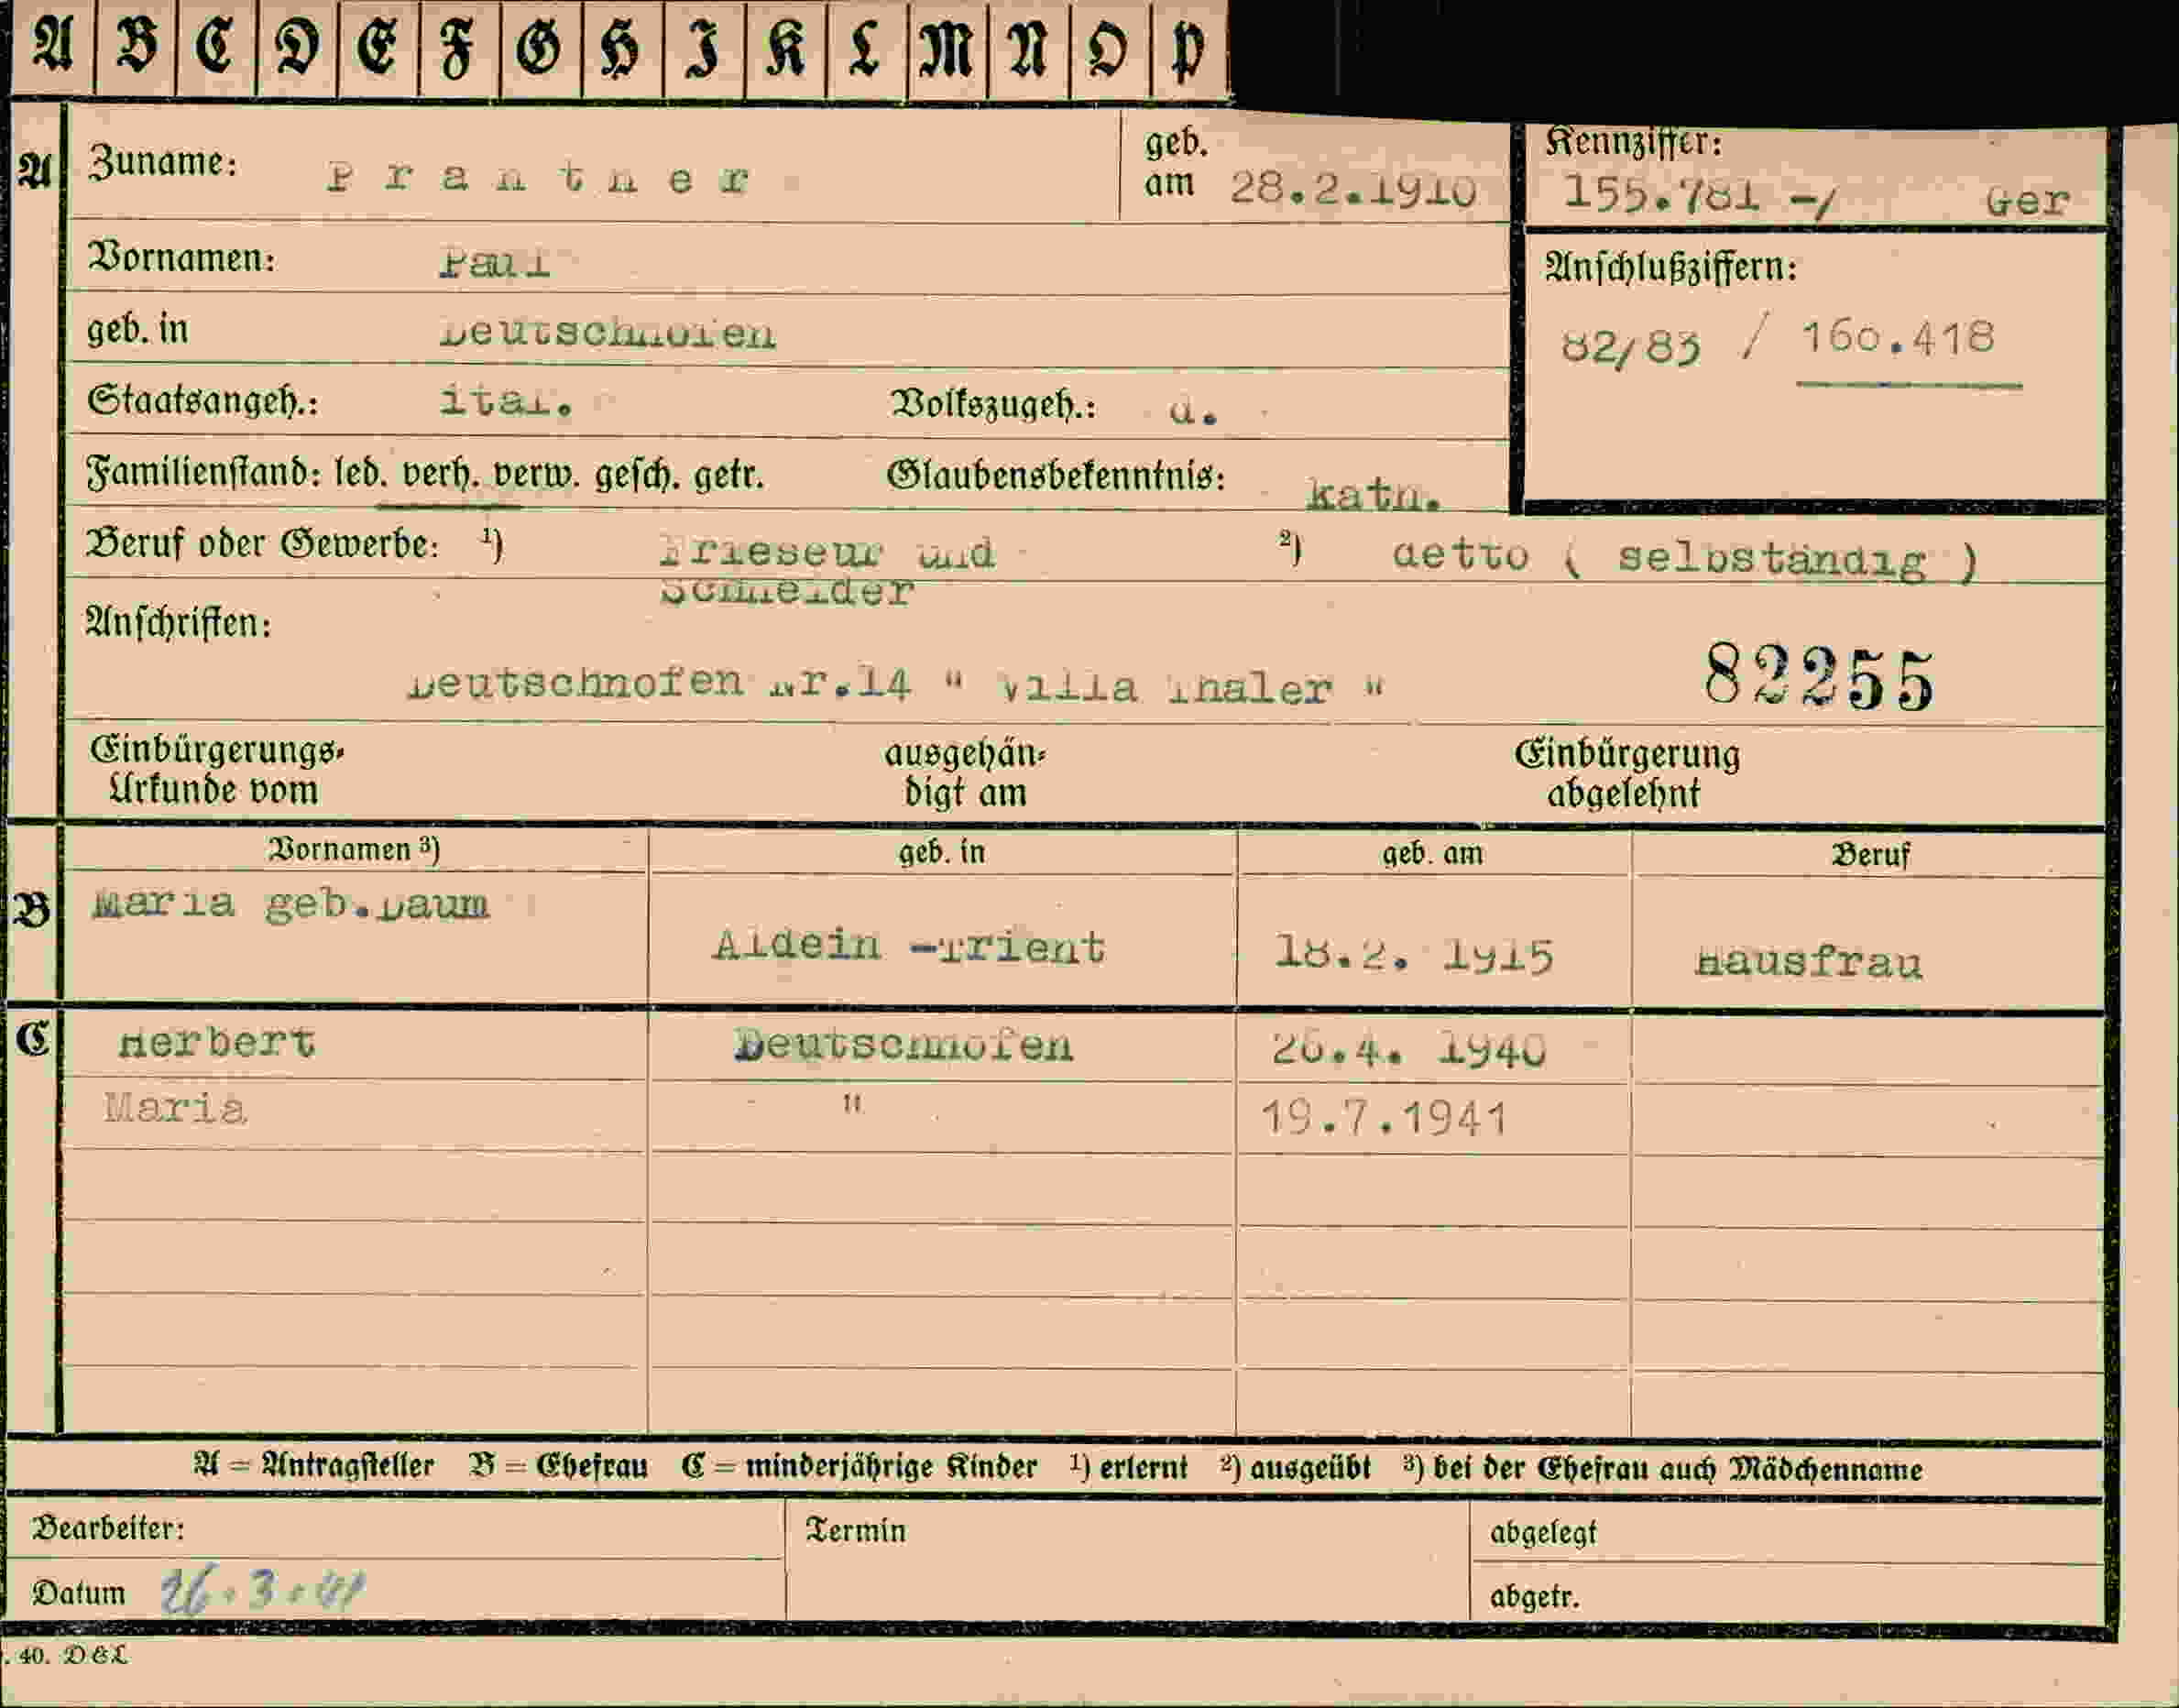 A B C D E F G H I K L M N O P
A Zuname: Prantner geb. am 28.2.1910 Kennziffer: 155.781 -/ Ger
Vornamen: Paul Anschlußziffern:
geb. in Deutschnofen 82/83 / 160.418
Staatsangeh.: ital. Volkszugeh.: d.
Familienstand: led. verh. verw. gesch. getr. Glaubensbekenntnis: kath.
Beruf oder Gewerbe: 1) Frieseur und 2) detto ( selbständig )
Schneider
Anschriften:
Deutschnofen Nr.14 " Villa Thaler " 82255
Einbürgerungs- ausgehän- Einbürgerung
Urkunde vom digt am abgelehnt
Vornamen 3) geb. in geb. am Beruf
B Maria geb.Daum
Aldein -Trient 18.2. 1915 Hausfrau
C Herbert Deutschnofen 26.4. 1940
Maria " 19.7.1941
A = Antragsteller B = Ehefrau C = minderjährige Kinder 1) erlernt 2) ausgeübt 3) bei der Ehefrau auch Mädchenname
Bearbeiter: Termin abgelegt
Datum 26.3.41 abgetr.
. 40. D&L